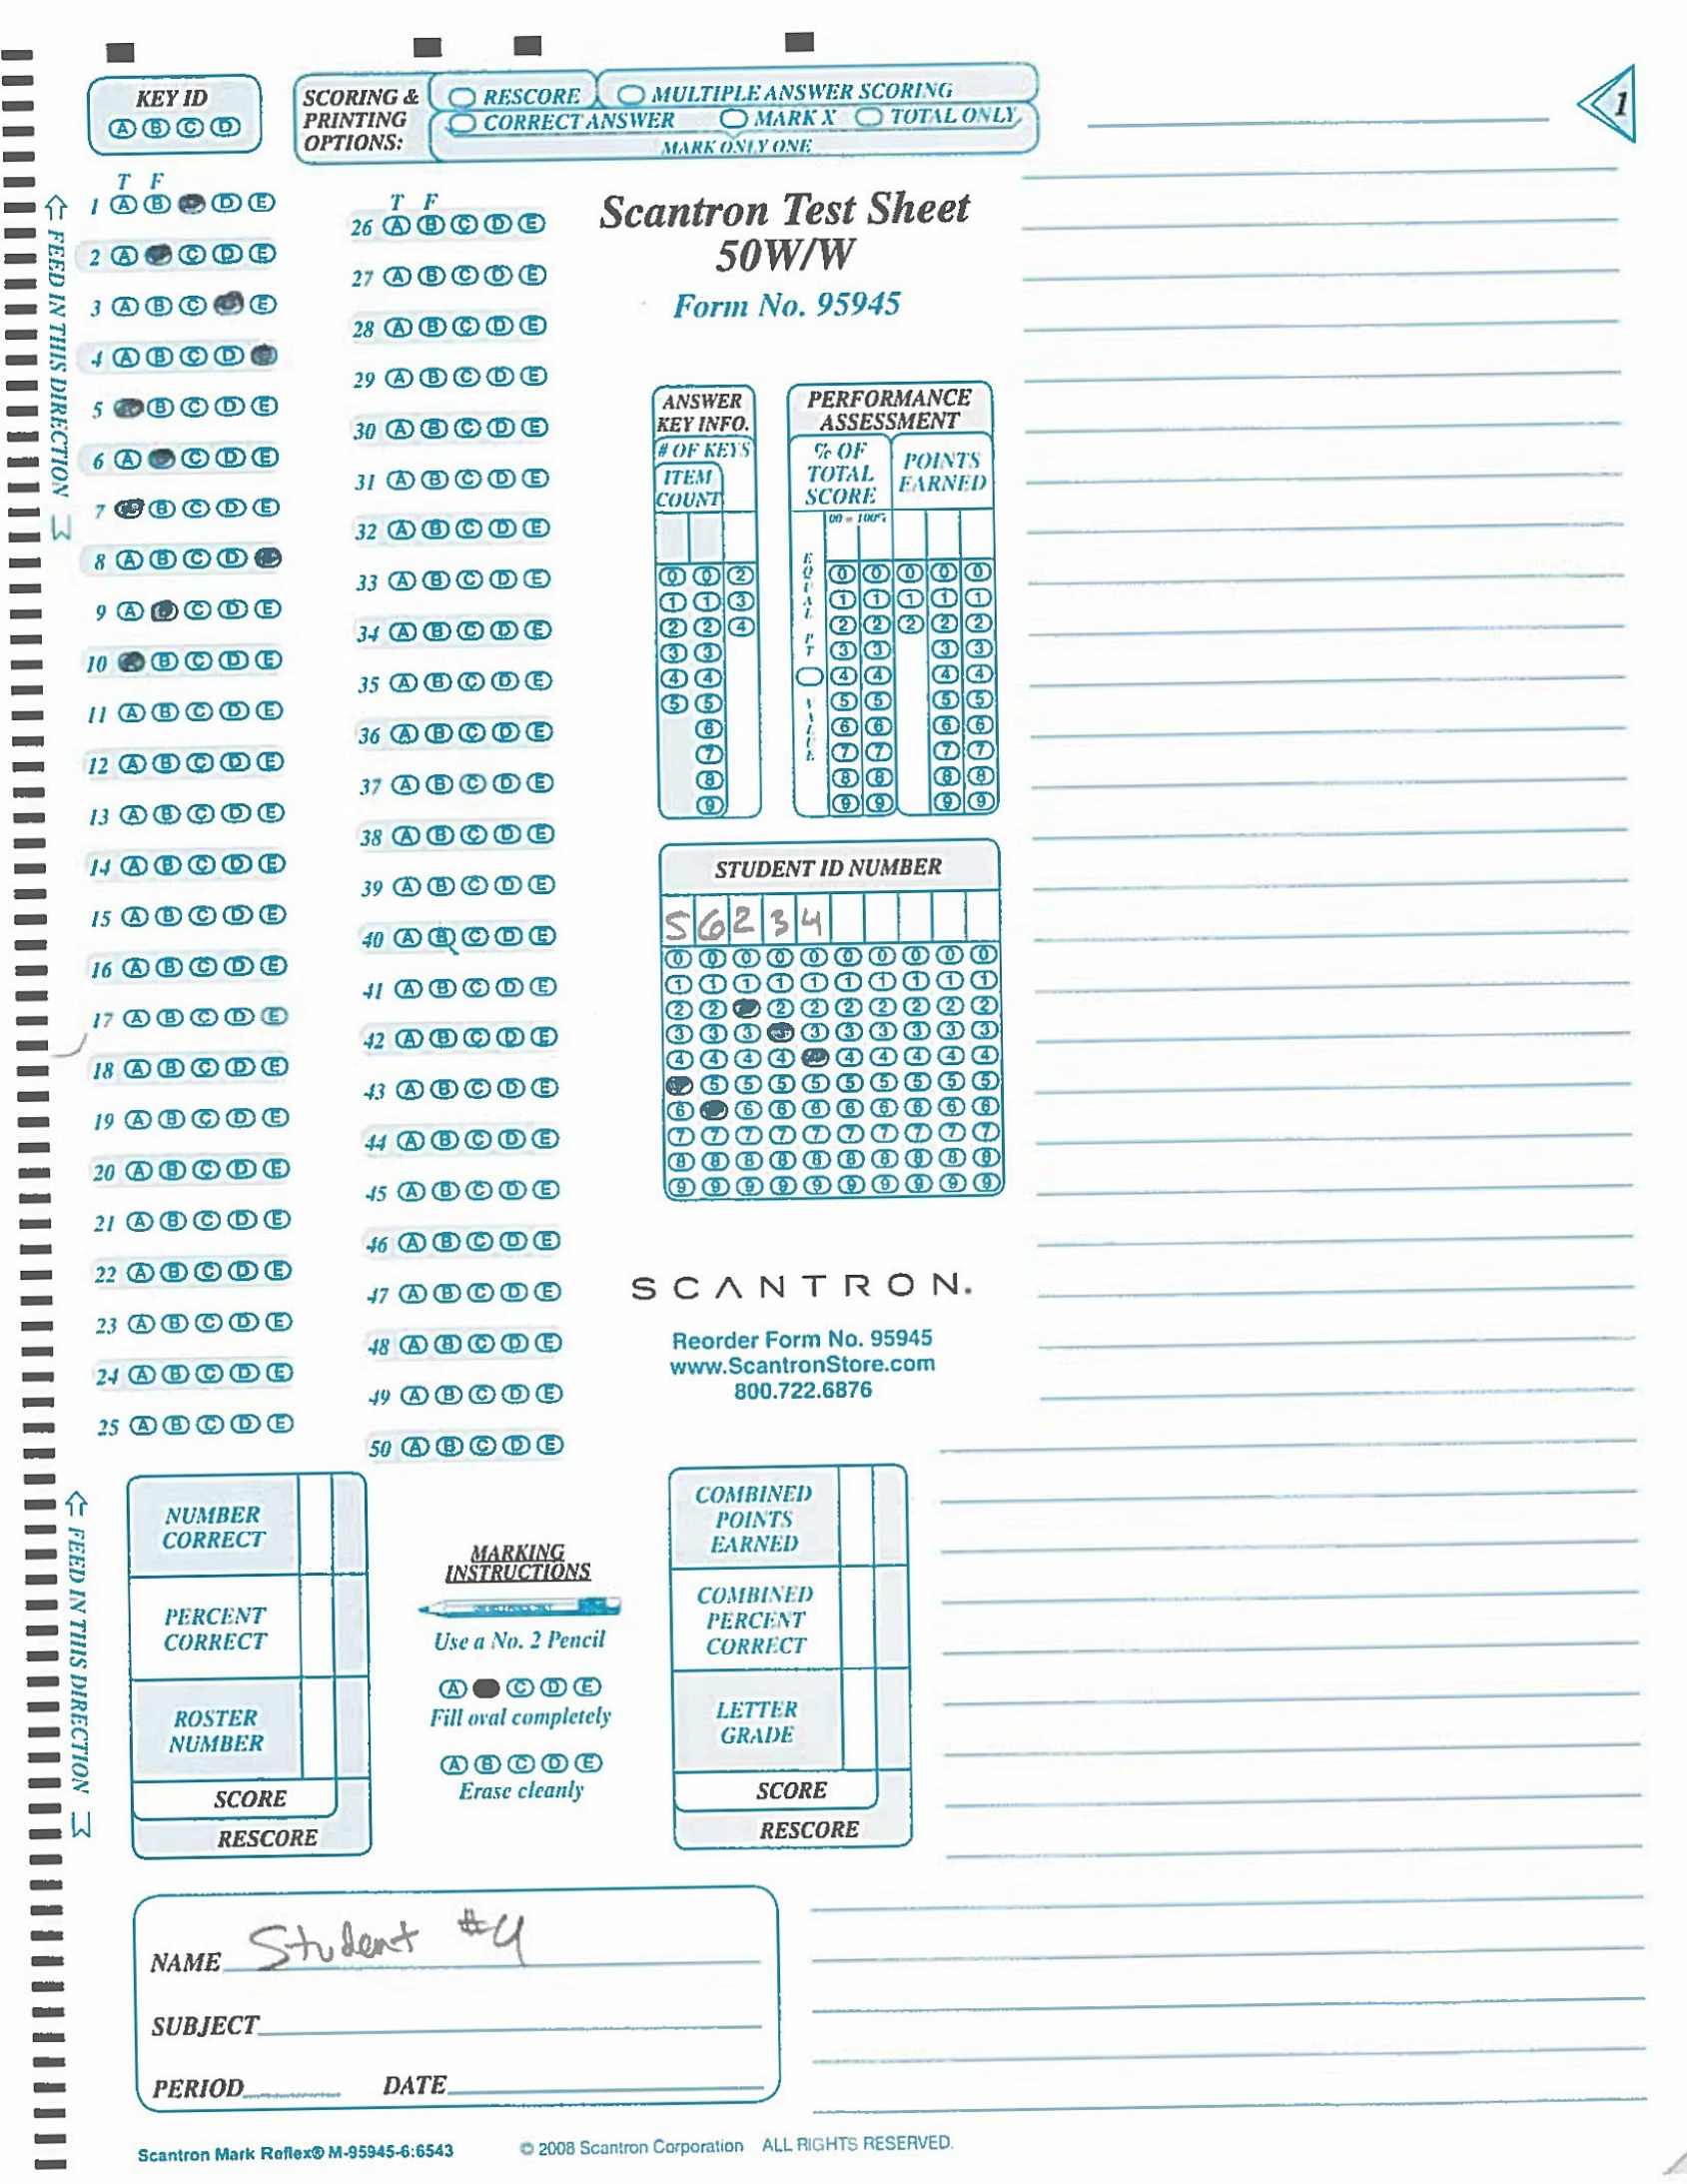 KEY ID
A B C D
SCORING &
PRINTING
OPTIONS:
RESCORE MULTIPLE ANSWER SCORING
CORRECT ANSWER MARK X TOTAL ONLY
MARK ONLY ONE
1
FEED IN THIS DIRECTION
T F
1 A B D E
2 A C D E
3 A B C E
4 A B C D
5 B C D E
6 A C D E
7 B C D E
8 A B C D
9 A C D E
10 B C D E
11 A B C D E
12 A B C D E
13 A B C D E
14 A B C D E
15 A B C D E
16 A B C D E
17 A B C D E
18 A B C D E
19 A B C D E
20 A B C D E
21 A B C D E
22 A B C D E
23 A B C D E
24 A B C D E
25 A B C D E
T F
26 A B C D E
27 A B C D E
28 A B C D E
29 A B C D E
30 A B C D E
31 A B C D E
32 A B C D E
33 A B C D E
34 A B C D E
35 A B C D E
36 A B C D E
37 A B C D E
38 A B C D E
39 A B C D E
40 A B C D E
41 A B C D E
42 A B C D E
43 A B C D E
44 A B C D E
45 A B C D E
46 A B C D E
47 A B C D E
48 A B C D E
49 A B C D E
50 A B C D E
Scantron Test Sheet
50W/W
Form No. 95945
ANSWER
KEY INFO.
# OF KEYS
ITEM
COUNT
0 0 2
1 1 3
2 2 4
3 3
4 4
5 5
6
7
8
9
PERFORMANCE
ASSESSMENT
% OF
TOTAL
SCORE
POINTS
EARNED
00 = 100%
EQUAL PT VALUE
0 0 0 0 0
1 1 1 1 1
2 2 2 2 2
3 3 3 3
4 4 4 4
5 5 5 5
6 6 6 6
7 7 7 7
8 8 8 8
9 9 9 9
STUDENT ID NUMBER
5 6 2 3 4
0 0 0 0 0 0 0 0 0 0
1 1 1 1 1 1 1 1 1 1
2 2 2 2 2 2 2 2 2
3 3 3 3 3 3 3 3 3
4 4 4 4 4 4 4 4 4
5 5 5 5 5 5 5 5 5
6 6 6 6 6 6 6 6 6
7 7 7 7 7 7 7 7 7 7
8 8 8 8 8 8 8 8 8 8
9 9 9 9 9 9 9 9 9 9
SCANTRON.
Reorder Form No. 95945
www.ScantronStore.com
800.722.6876
FEED IN THIS DIRECTION
NUMBER
CORRECT
PERCENT
CORRECT
ROSTER
NUMBER
SCORE
RESCORE
MARKING
INSTRUCTIONS
Use a No. 2 Pencil
A C D E
Fill oval completely
A B C D E
Erase cleanly
COMBINED
POINTS
EARNED
COMBINED
PERCENT
CORRECT
LETTER
GRADE
SCORE
RESCORE
NAME Student #4
SUBJECT
PERIOD DATE
Scantron Mark Reflex® M-95945-6:6543 © 2008 Scantron Corporation ALL RIGHTS RESERVED.